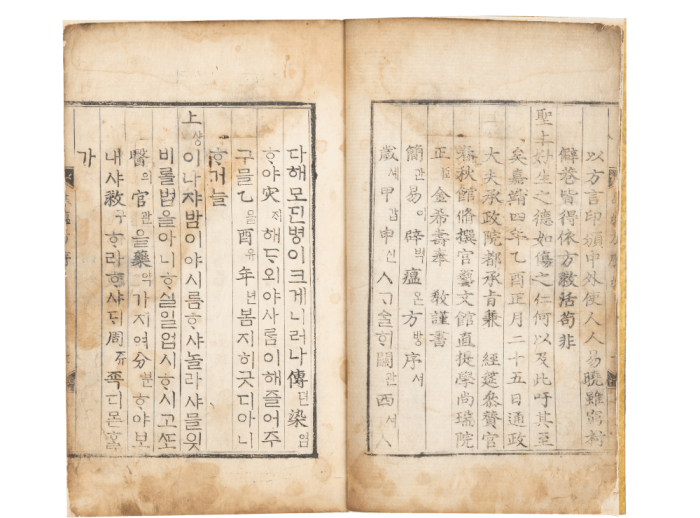 以方言印頒中外使人人易曉雖窮村
僻巷皆得依方救活苟非
聖上好生之德如傷之仁何以及此吁其至
矣嘉靖四年乙酉正月二十五日通政
大夫承政院都承旨兼 經筵參贊官
春秋館脩撰官藝文館直提學尚瑞院
正臣金希壽奉 敎謹書
簡간易이辟벽瘟온方방序셔
歲셰甲갑申신ㅅᄀᆞᄉᆞᆯᄒᆡ關관西셔ㅅ
다해모딘병이크게니러나傳뎐染염
ᄒᆞ야灾ᄌᆡ해ᄃᆞ외야사ᄅᆞᆷ이해즐어주
구믈乙을酉유年년봄지히긋디아니
ᄒᆞ거늘
上샹이나쟈밤이야시름ᄒᆞ샤놀라샤믈잇
비롤법을아니ᄒᆞ실일업시ᄒᆞ시고ᄯᅩ
醫의官관을藥약가지여分분ᄒᆞ야보
내샤救구ᄒᆞ라ᄒᆞ샤ᄃᆡ周쥬디몯ᄒᆞᆯ
가